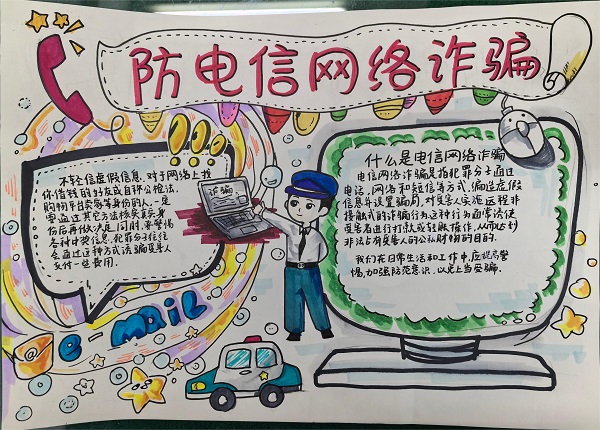 防电信网络诈骗
不轻信虚假信息。对于网络上找
你借钱的好友或自称公检法、
购物平台卖家等身份的人，一定
要通过其它方法核实真实身
份后再做决定。同时，要警惕
各种中奖信息，犯罪分子往往
会通过这种方式诱骗受害人
支付一些费用。
诈骗
什么是电信网络诈骗
电信网络诈骗是指犯罪分子通过
电话、网络和短信等方式，编造虚假
信息并设置骗局，对受害人实施远程非
接触式的诈骗行为，这种行为通常诱使
受害者进行打款或转账操作，从而达到
非法占有受害人的公私财物的目的。
我们在日常生活和工作中，应提高警
惕，加强防范意识，以免上当受骗。
e-mail
@